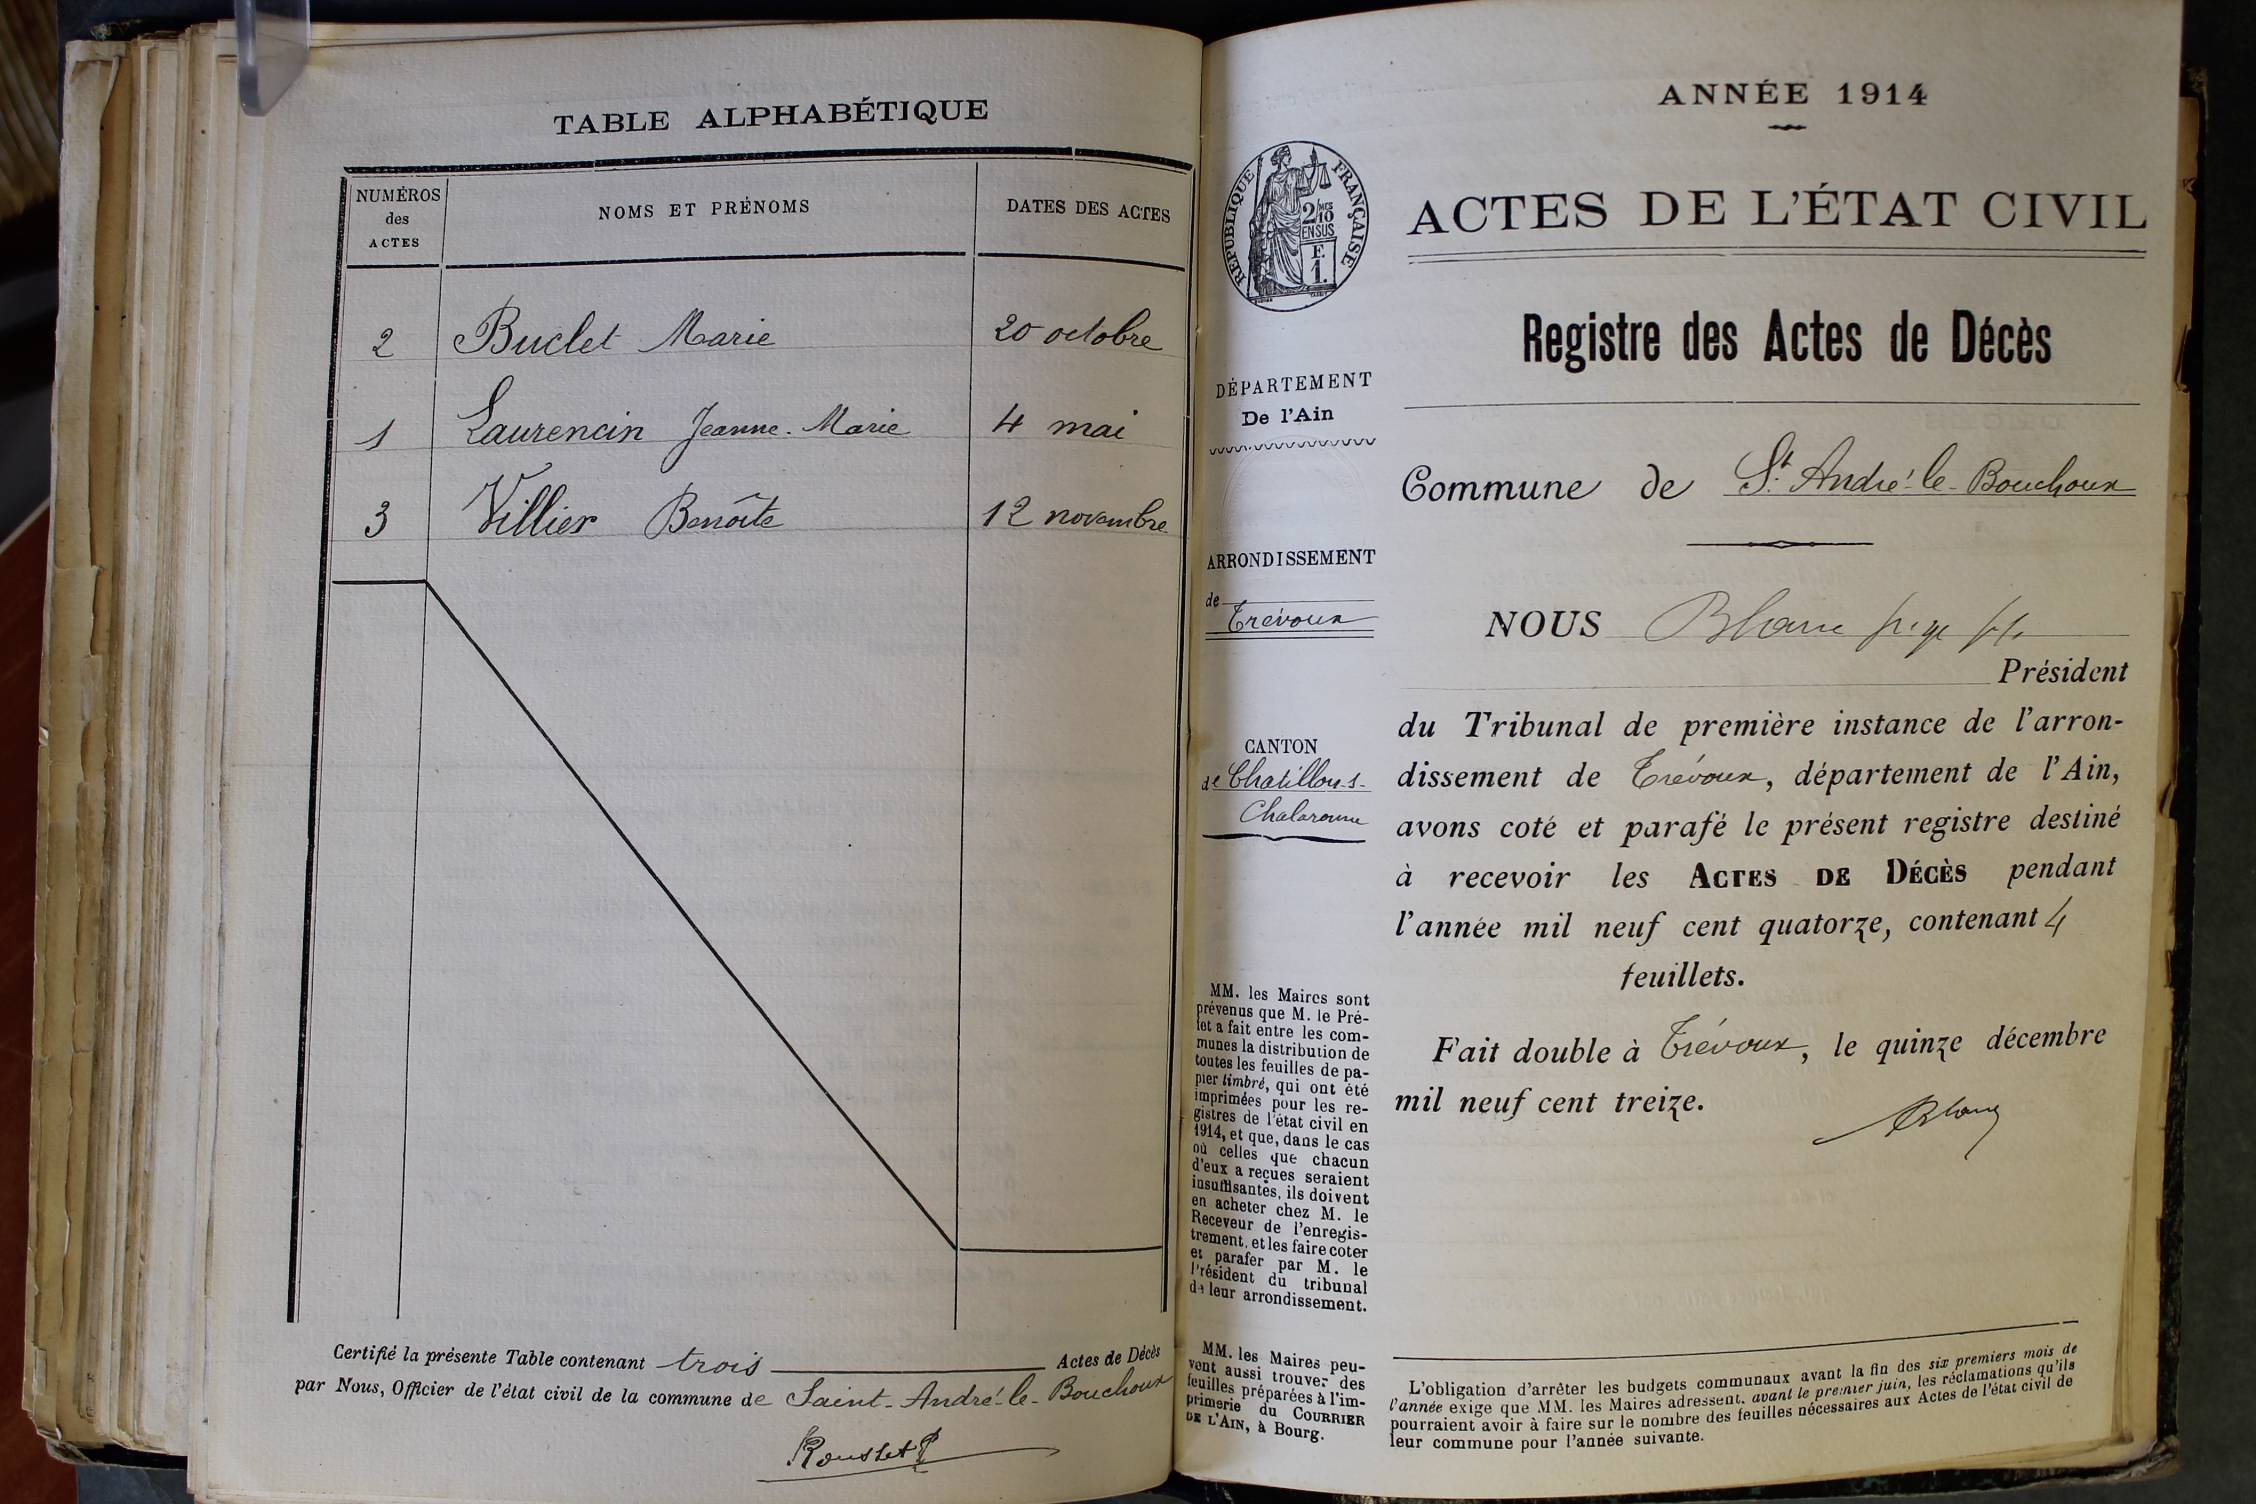 TABLE ALPHABÉTIQUE
NUMÉROS
des
ACTES
NOMS ET PRÉNOMS
DATES DES ACTES
2 Buclet Marie 20 octobre
1 Laurencin Jeanne-Marie 4 mai
3 Villier Benoîte 12 novembre
Certifié la présente Table contenant trois Actes de Décès
par Nous, Officier de l'état civil de la commune de Saint-André-le-Bouchoux
Rousset
ANNÉE 1914
RÉPUBLIQUE FRANÇAISE
2/10
MES
EN SUS
F.
1.
ACTES DE L'ÉTAT CIVIL
Registre des Actes de Décès
DÉPARTEMENT
De l'Ain
ARRONDISSEMENT
de
Trévoux
CANTON
de Chatillon-s-
Chalaronne
MM. les Maires sont
prévenus que M. le Pré-
fet a fait entre les com-
munes la distribution de
toutes les feuilles de pa-
pier timbré, qui ont été
imprimées pour les re-
gistres de l'état civil en
1914, et que, dans le cas
où celles que chacun
d'eux a reçues seraient
insuffisantes, ils doivent
en acheter chez M. le
Receveur de l'enregis-
trement, et les faire coter
et parafer par M. le
Président du tribunal
de leur arrondissement.
MM. les Maires peu-
vent aussi trouver des
feuilles préparées à l'im-
primerie du COURRIER
DE L'AIN, à Bourg.
Commune de St. André-le-Bouchoux
NOUS Blanc
Président
du Tribunal de première instance de l'arron-
dissement de Trévoux, département de l'Ain,
avons coté et parafé le présent registre destiné
à recevoir les ACTES DE DÉCÈS pendant
l'année mil neuf cent quatorze, contenant 4
feuillets.
Fait double à Trévoux, le quinze décembre
mil neuf cent treize.
Blanc
L'obligation d'arrêter les budgets communaux avant la fin des six premiers mois de
l'année exige que MM. les Maires adressent, avant le premier juin, les réclamations qu'ils
pourraient avoir à faire sur le nombre des feuilles nécessaires aux Actes de l'état civil de
leur commune pour l'année suivante.